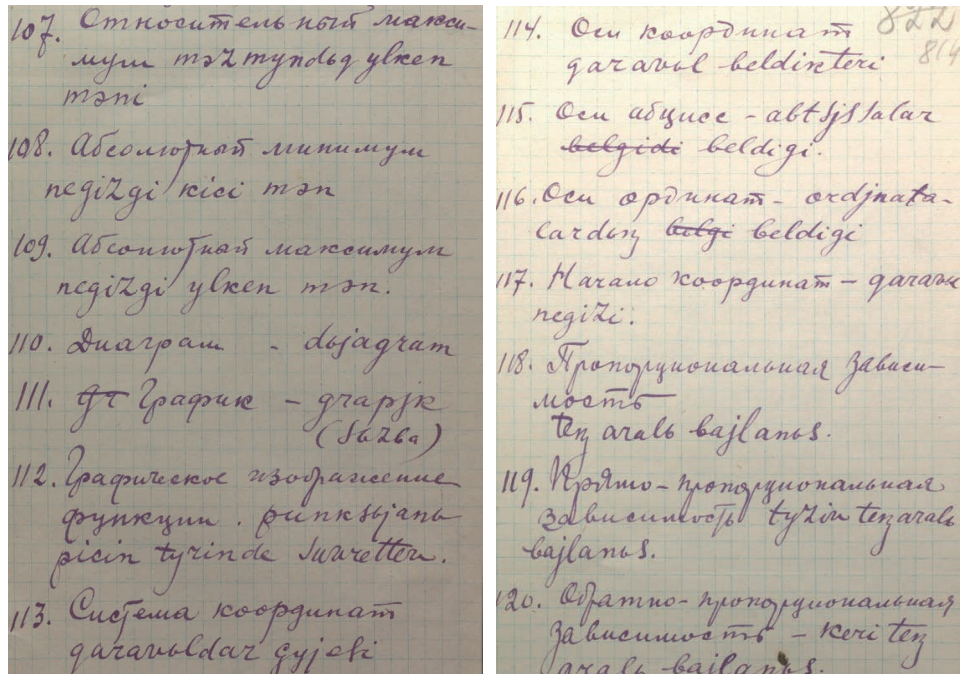 107. Относительный макси-
мум məƶmyndьq ylken
məni
108. Абсолютный минимум
negiƶgi kici mən
109. Абсолютный максимум
negiƶgi ylken mən.
110. Диаграм - dьjagram
111. График - grapjk
(Sьƶba)
112. Графическое изображение
функции. punksьjanь
picin tyrinde suvretteu.
113. Система координат
qaravuldar çyjesi
822
814
114. Оси координат
qaravul beldikteri
115. Оси абцисс - abtsjssalar
belgidi beldigi.
116. Оси ординат - ordjnata-
lardьꞑ belgi beldigi
117. Начало координат - qaravul
negiƶi.
118. Пропорциональная зависи-
мость
teꞑ aralь bajlanьs.
119. Прямо-пропорциональная
зависимость tyzin teꞑ aralь
bajlanьs.
120. Обратно-пропорциональная
зависимость - keri teꞑ
aralь bajlanьs.